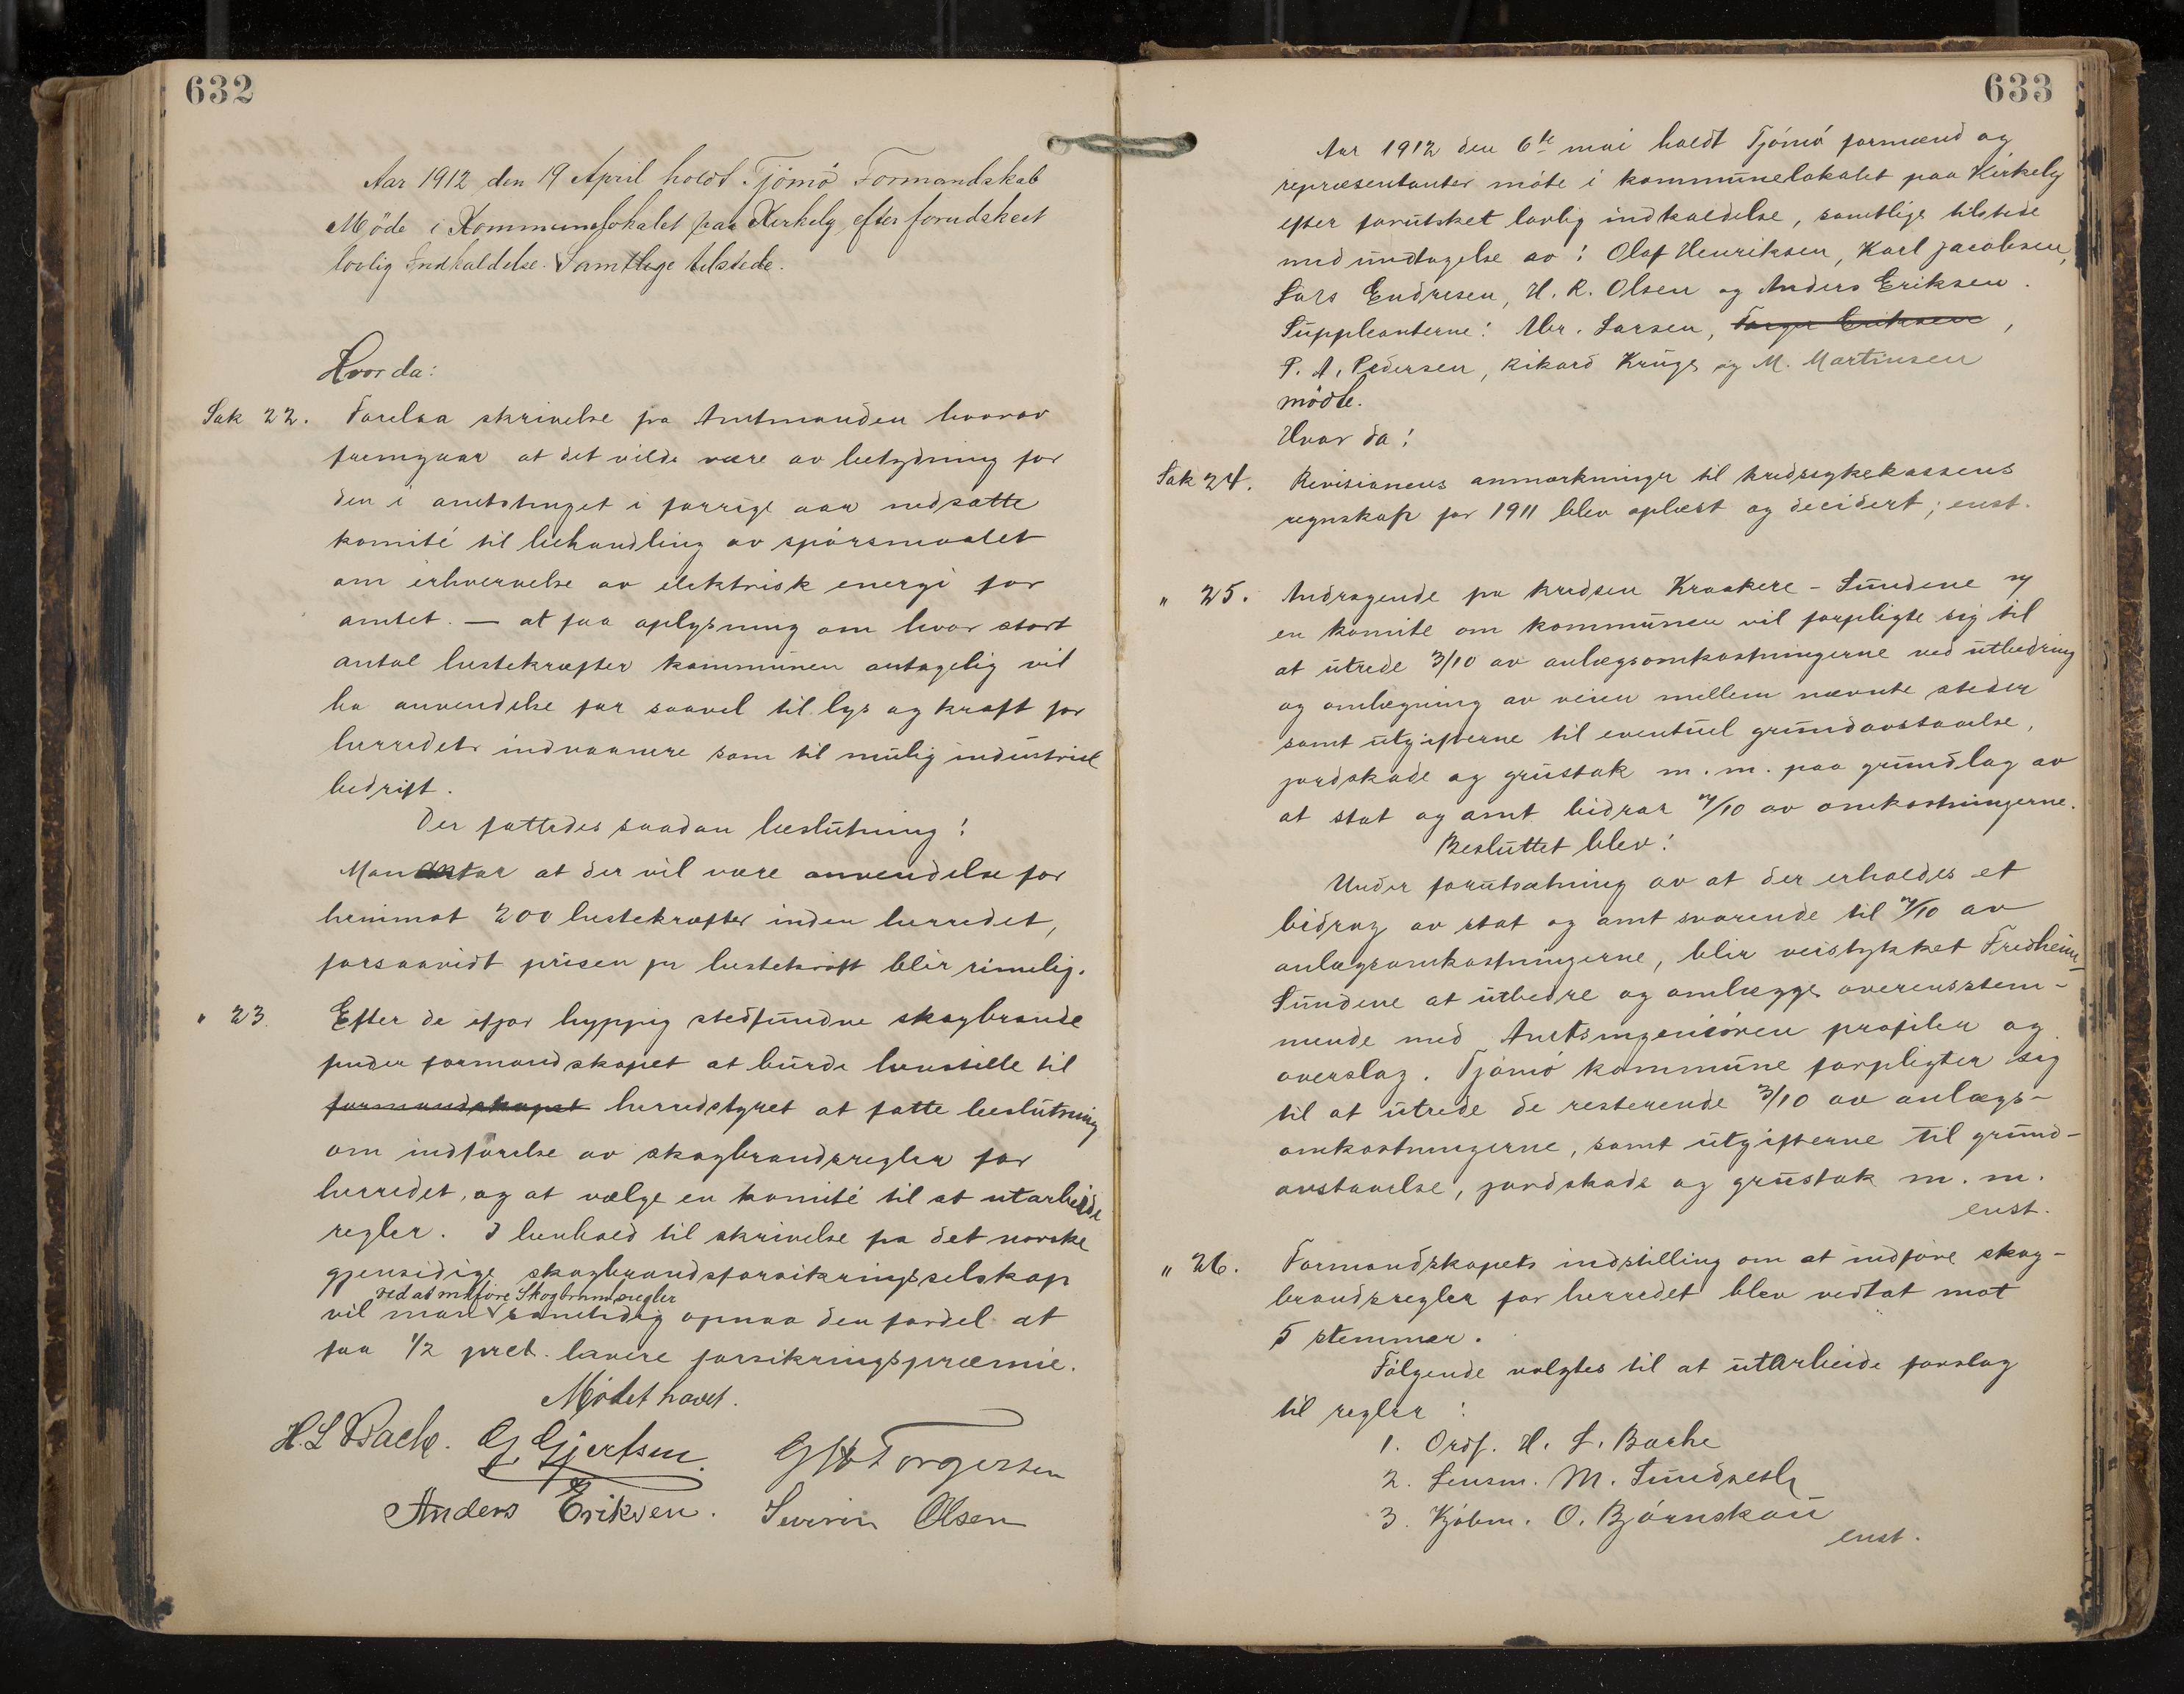 632
Aar 1912 den 19 April holdt Tjömö Formandskab
Möde i Kommunelokalet paa Kirkely efter forudskeet
lovlig Indkaldelse. Samtlige tilstede.
Hvor da:
Sak 22. Forelaa skrivelse fra Amtmanden hvorav
fremgaar at det vilde være av betydning for
den i amtstinget i forrige aar nedsatte
komité til behandling av spörsmaalet
om erhvervelse av elektrisk energi for
amtet. — at faa oplysning om hvor stort
antal hestekræfter kommunen antagelig vil
ha anvendelse for saavel til lys og kraft for
herredets indvaanere som til mulig industriel
bedrift.
Der fattedes saadan beslutning:
Man antar at der vil være anvendelse for
henimot 200 hestekræfter inden herredet,
forsaavidt prisen pr hestekraft blir rimelig.
" 23. Efter de ifjor hyppig stedfundne skogbrande
finder formandskapet at burde henstille til
formandskapet herredstyret at fatte beslutning
om indförelse av skogbrandsregler for
herredet, og at vælge en komité til at utarbeide
regler. I henhold til skrivelse fra det norske
gjensidige skogbrandsforsikringsselskap
ved at indföre Skogbrandsregler
vil man samtidig opnaa den fordel at
faa 1/2 prct. lavere forsikringspræmie.
Mödet hævet.
H. L Bache. G. Gjertsen. G H Torgersen
Anders Eriksen. Severin Olsen
633
Aar 1912 den 6te mai holdt Tjömö formænd og
repræsentanter möte i kommunelokalet paa Kirkely
efter forutsket lovlig indkaldelse, samtlige tilstede
med undtagelse av: Olaf Henriksen, Karl Jacobsen,
Lars Endresen, H. R. Olsen og Anders Eriksen.
Suppleanterne: Abr. Larsen, Torger Eriksen,
P. A. Pedersen, Rikard Kruge og M. Martinsen
mödte.
Hvor da:
Sak 24. Revisionens anmærkninger til kredssykekassens
regnskap for 1911 blev oplæst og decidert; enst.
" 25. Andragende fra kredsen Kraakere - Sundene og
en komite om kommunen vil forpligte sig til
at utrede 3/10 av anlægsomkostningerne ved utbedring
og omlægning av veien mellem nævnte steder
samt utgifterne til eventuel grundavstaaelse,
jordskade og grustak m. m. paa grundlag av
at stat og amt bidrar 7/10 av omkostningerne.
Besluttet blev:
Under forutsætning av at der erholdes et
bidrag av stat og amt svarende til 7/10 av
anlægsomkostningerne, blir veistykket Fredheim-
Sundene at utbedre og omlægge overensstem-
mende med Amtsingeniören profiler og
overslag. Tjömö kommune forpligter sig
til at utrede de resterende 3/10 av anlægs-
omkostningerne, samt utgifterne til grund-
avstaaelse, jordskade og grustak m. m.
enst.
" 26. Formandskapets indstilling om at indföre skog-
brandsregler for herredet blev vedtat mot
5 stemmer.
Fölgende valgtes til at utarbeide forslag
til regler:
1. Ordf. H. L. Bache
2. Lensm. M. Sundbeck
3. Kjöbm. O. Björnskau
enst.